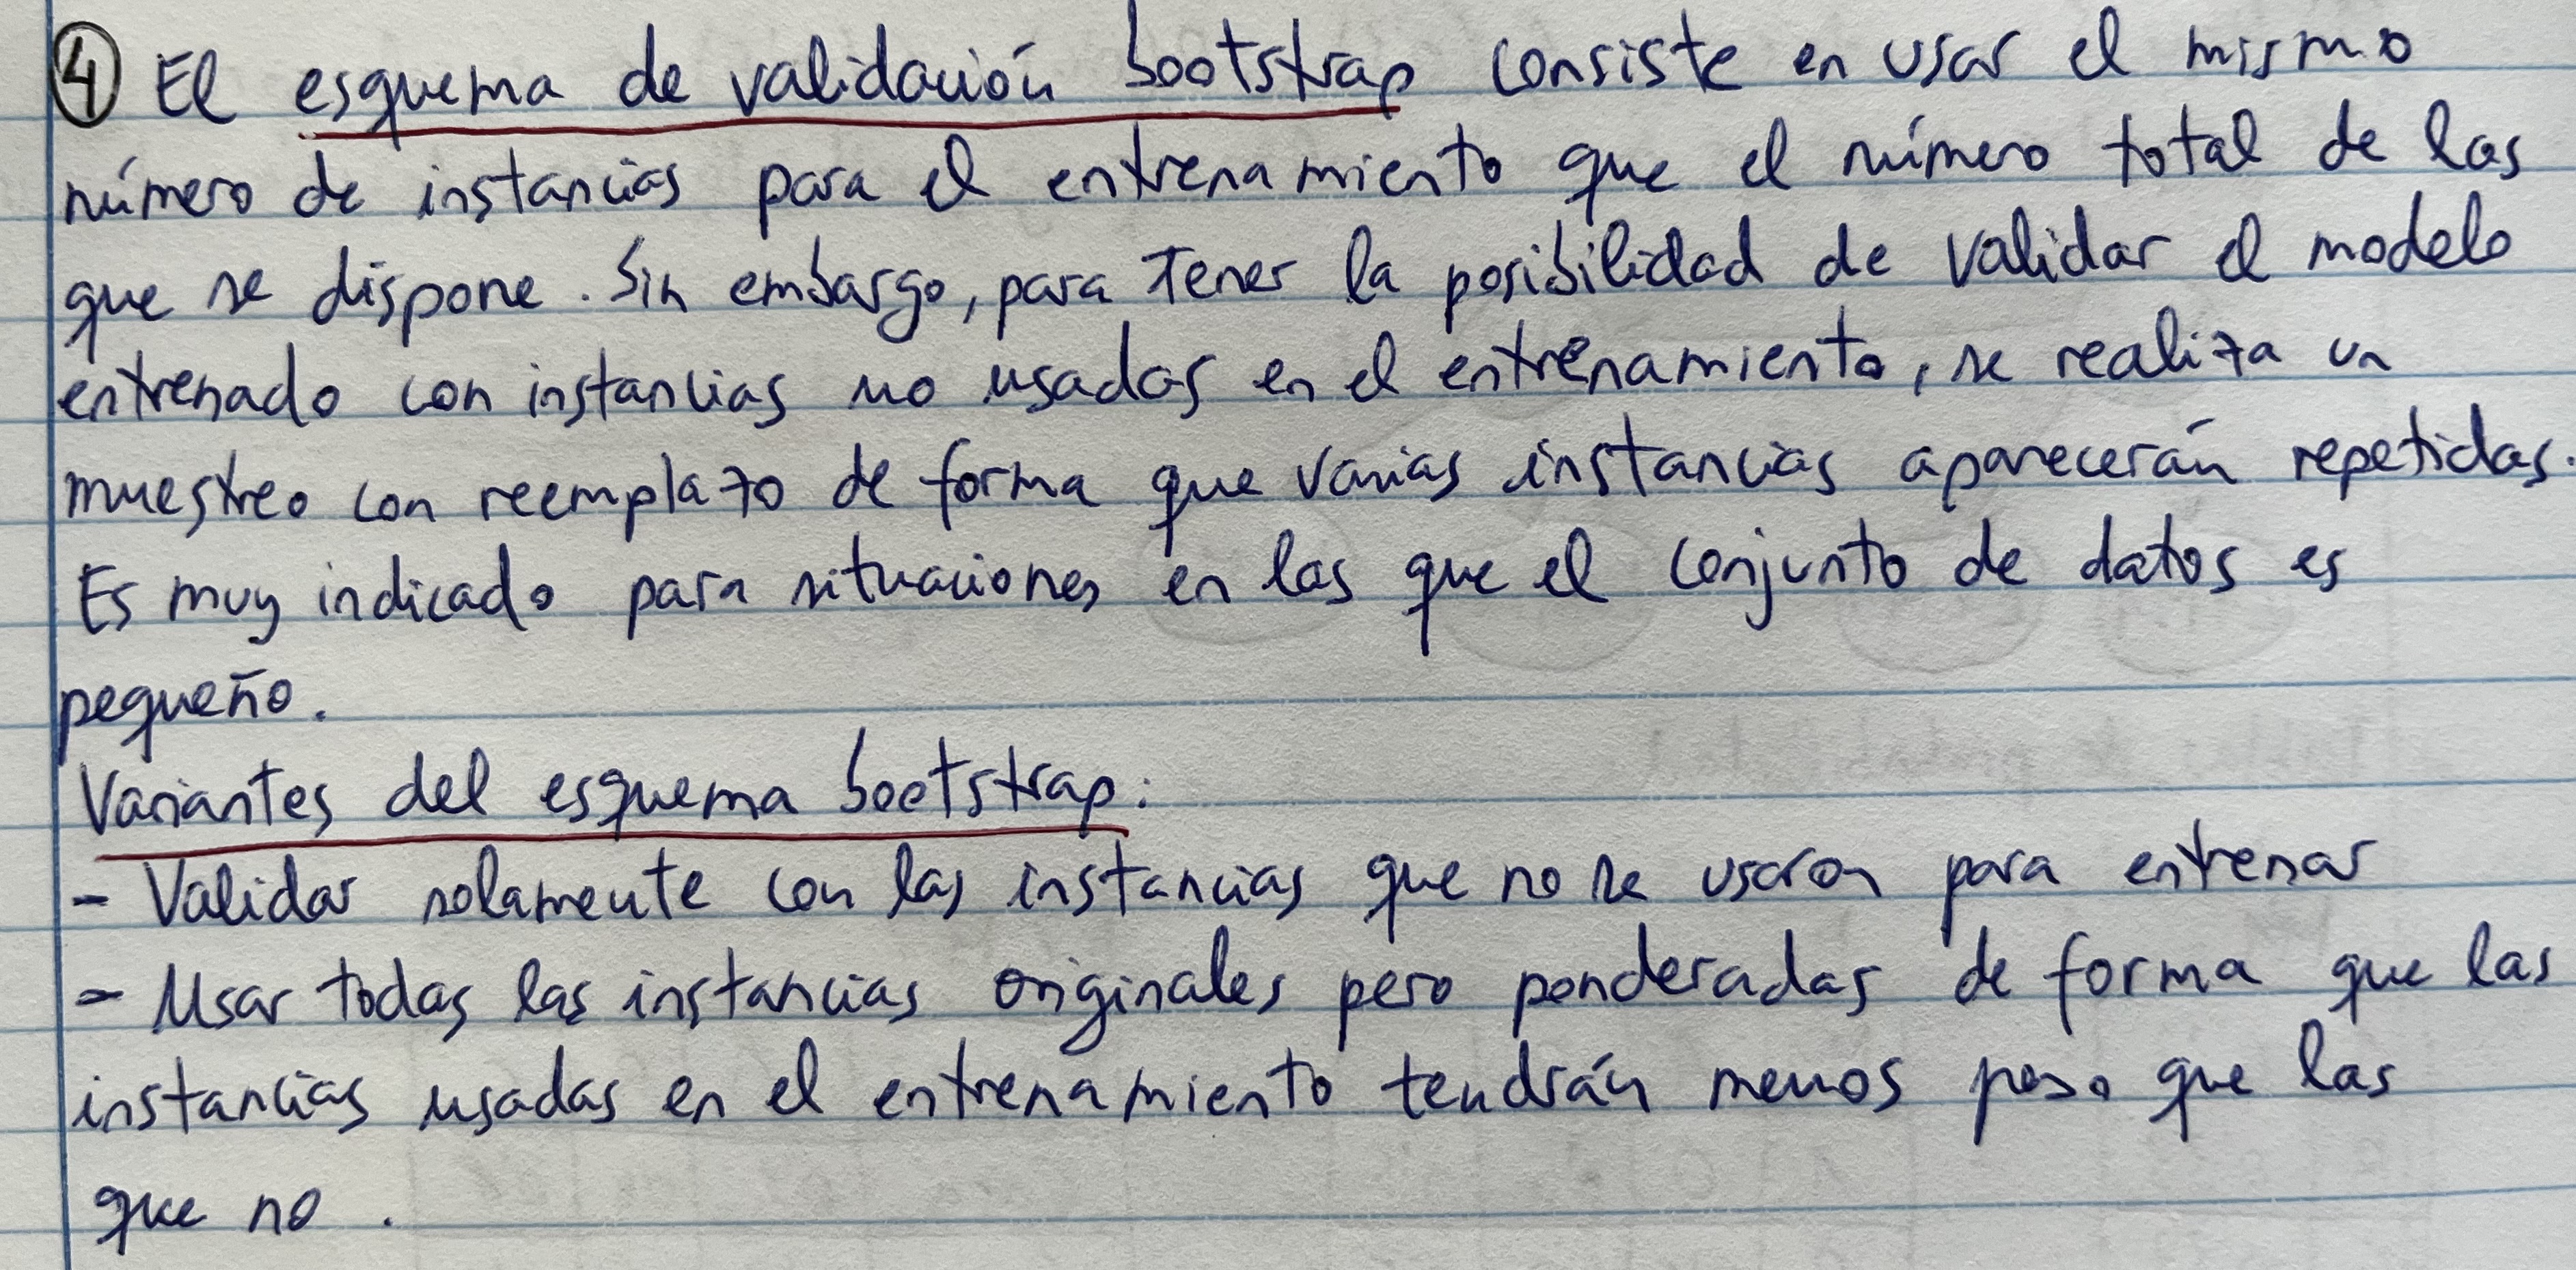 ④ El esquema de validación bootstrap consiste en usar el mismo
número de instancias para el entrenamiento que el número total de las
que se dispone. Sin embargo, para tener la posibilidad de validar el modelo
entrenado con instancias no usadas en el entrenamiento, se realiza un
muestreo con reemplazo de forma que varias instancias aparecerán repetidas.
Es muy indicado para situaciones en las que el conjunto de datos es
pequeño.
Variantes del esquema bootstrap:
- Validar solamente con las instancias que no se usaron para entrenar
- Usar todas las instancias originales pero ponderadas de forma que las
instancias usadas en el entrenamiento tendrán menos peso que las
que no.